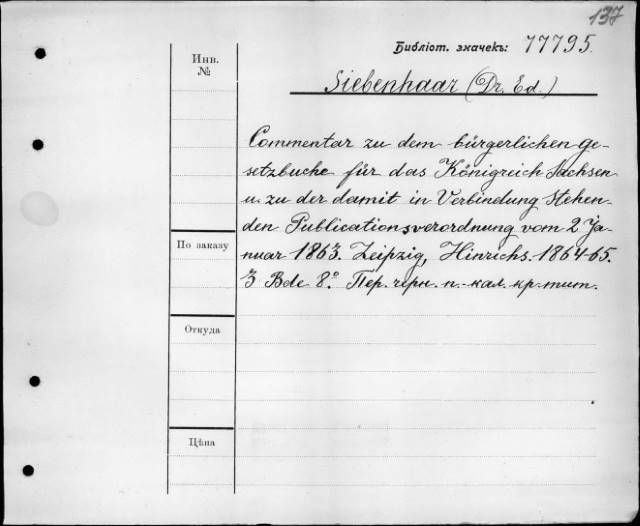 137
Библіот. значекъ: 77795.
Инв.
№
Siebenhaar (Dr. Ed.)
Commentar zu dem bürgerlichen Ge-
setzbuche für das Königreich Sachsen
u. zu der damit in Verbindung stehen-
den Publicationsverordnung vom 2 Ja-
nuar 1863. Leipzig, Hinrichs. 1864-65.
3 Bde 8.° Пер. черн. п.-кал. кр. тит.
По заказу
Откуда
Цѣна